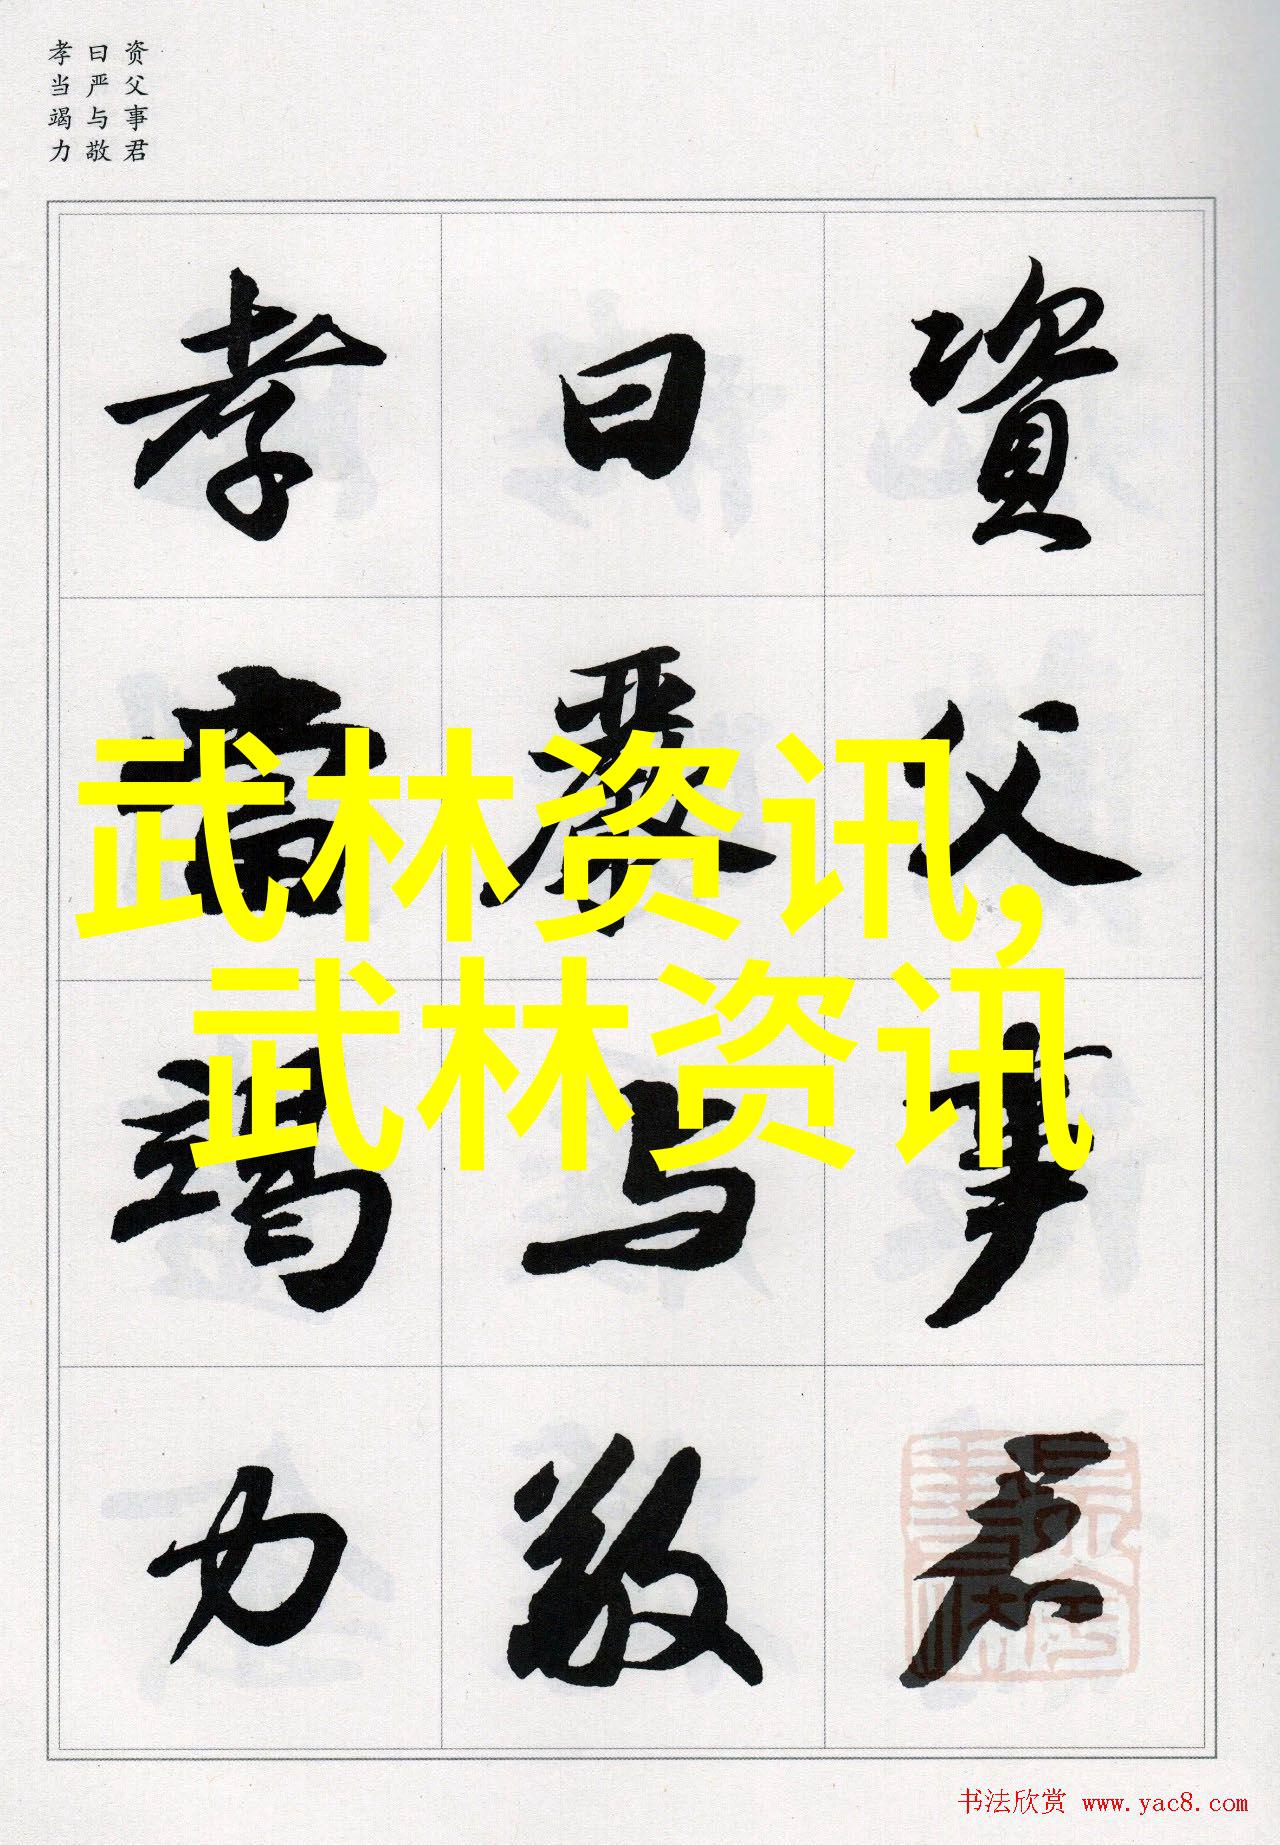 资父事君
曰严与敬
孝当竭力
資父事君
曰嚴与敬
孝當竭力
武林资讯,
武林资讯
书法欣赏 www.yac8.com